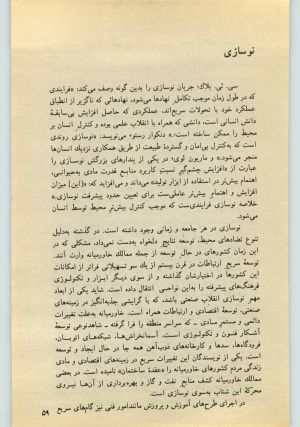 نوسازی
سی. تی. بلاک جریان نوسازی را بدین گونه وصف می‌کند: «فرایندی
که در طول زمان موجب تکامل نهادها می‌شود، نهادهائی که ناگزیر از انطباق
عملکرد خود با تحولات سریع‌اند، عملکردی که حاصل افزایش بی‌سابقهٔ
دانش انسانی است، دانشی که همراه با انقلاب علمی بوده و کنترل انسان بر
محیط را ممکن ساخته است.» دنکوارد رستو می‌نویسد: «نوسازی روندی
است که به‌کنترل بی‌امان و گستردهٔ طبیعت از طریق همکاری نزدیک انسان‌ها
منجر می‌شود.» و ماریون لوی، در یکی از پندارهای بزرگش نوسازی را
عبارت از «افزایش چشم‌گیر نسبت کاربرد منابع قدرت مادی به‌حیوانی،
اهتمام بیش‌تر در استفاده از ابزار تولید» می‌داند و می‌افزاید که: «این میزان
افزایش و اهتمام بیش‌تر عاملی‌ست برای تعیین حدود پیشرفت نوسازی.»
خلاصه نوسازی فرایندی‌ست که موجب کنترل بیش‌تر محیط توسط انسان
می‌شود.
نوسازی در هر جامعه و زمانی وجود داشته است. در گذشته به‌دلیل
تنوع فضاهای محیط، توسعه نتایج دلخواه به‌دست نمی‌داد، مشکلی که در
این زمان کشورهای در حال توسعه از جمله ممالک خاورمیانه وارث آنند.
توسعهٔ سریع ارتباطات در قرن بیستم از یک سو تسهیلاتی فراتر از امکانات
این کشورها در اختیارشان گذاشته و از سوی دیگر ابزار و تکنولوژی
فرهنگ‌های پیشرفته را به‌این نواحی انتقال داده است. شاید یکی از ابعاد
مهم نوسازی انقلاب صنعتی باشد، که با گرایشی جذبه‌انگیز در زمینه‌های
صنعتی، توسعهٔ اقتصادی و ارتباطات همراه است. خاورمیانه به‌علت تغییرات
دائمی و مستمر مادی ـ که سراسر منطقه را فرا گرفته ـ شاهدنوعی توسعهٔ
آشکار فنون و تکنولوژی است. آسمانخراش‌ها، شبکه‌های اتوبان،
فرودگاه‌ها، سدها و کارخانه‌های ذوب‌آهن همه جا در حال ایجاد و توسعه
است. یکی از نویسندگان این تغییرات سریع در زمینه‌های اقتصادی و مادی
زندگی مردم کشورهای خاورمیانه را «عقدهٔ ساختمان» نامیده است. در بعضی
ممالک خاورمیانه کشف منابع نفت و گاز و بهره‌برداری از آن‌ها نیروی
محرکهٔ این شتاب به‌سوی نوسازی است.
در اجرای طرح‌های آموزش و پرورش مانندامور فنی نیز گام‌های سریع
۵۹